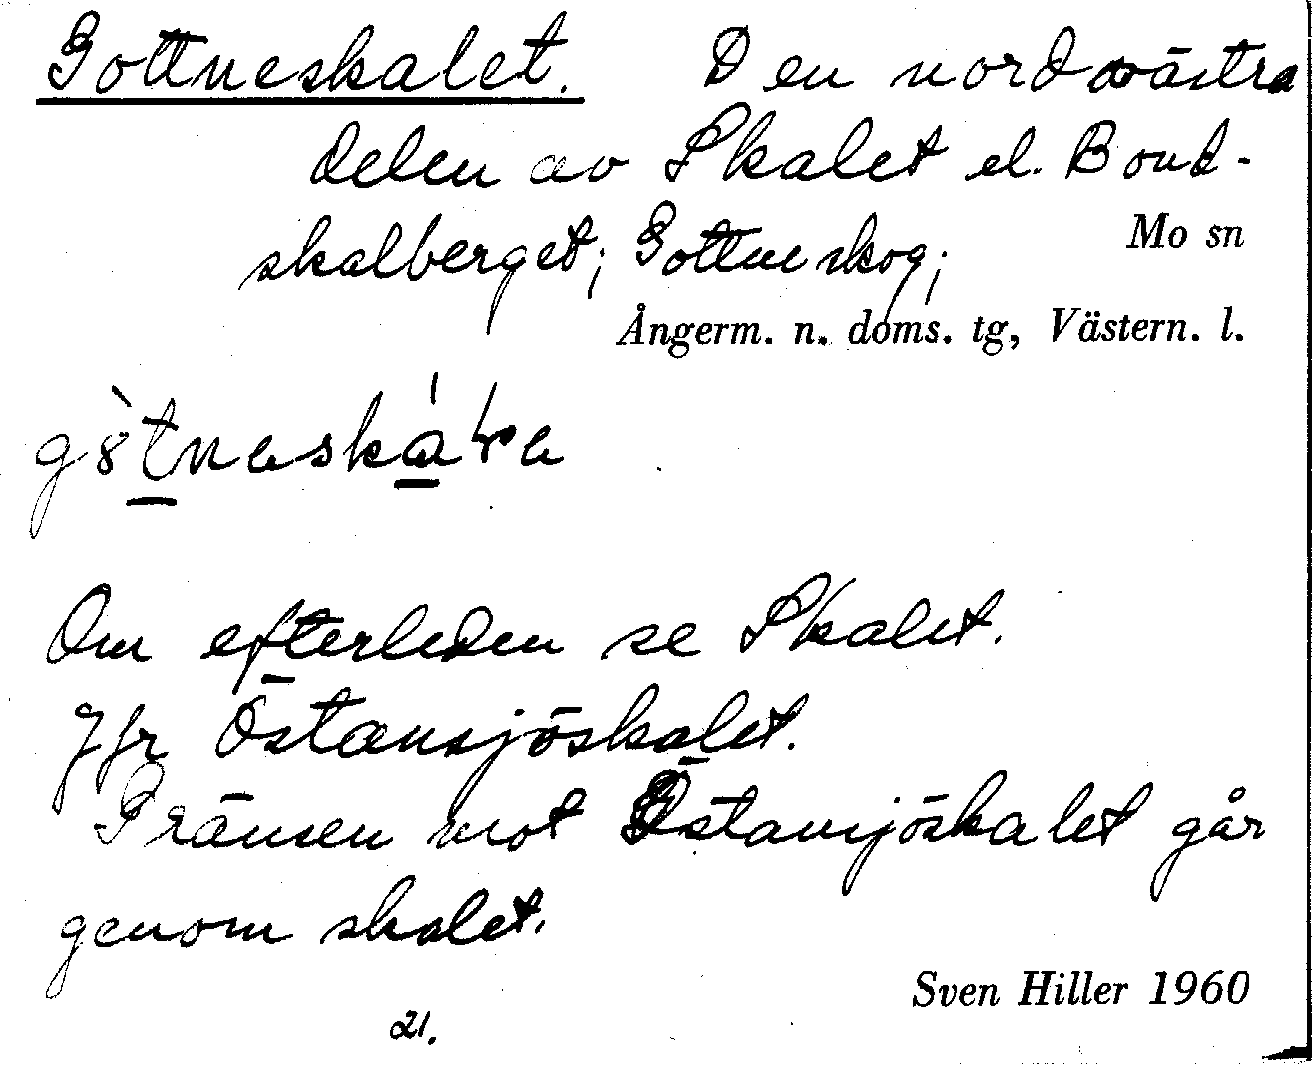 Gottneskalet. Den nordvästra
delen av Skalet el. Bond-
skalberget; Gottne skog;
Mo sn
Ångerm. n. doms. tg, Västern. l.
Om efterleden se Skalet.
Jfr Östansjöskalet.
Gränsen mot Östansjöskalet går
genom skalet.
Sven Hiller 1960
21.